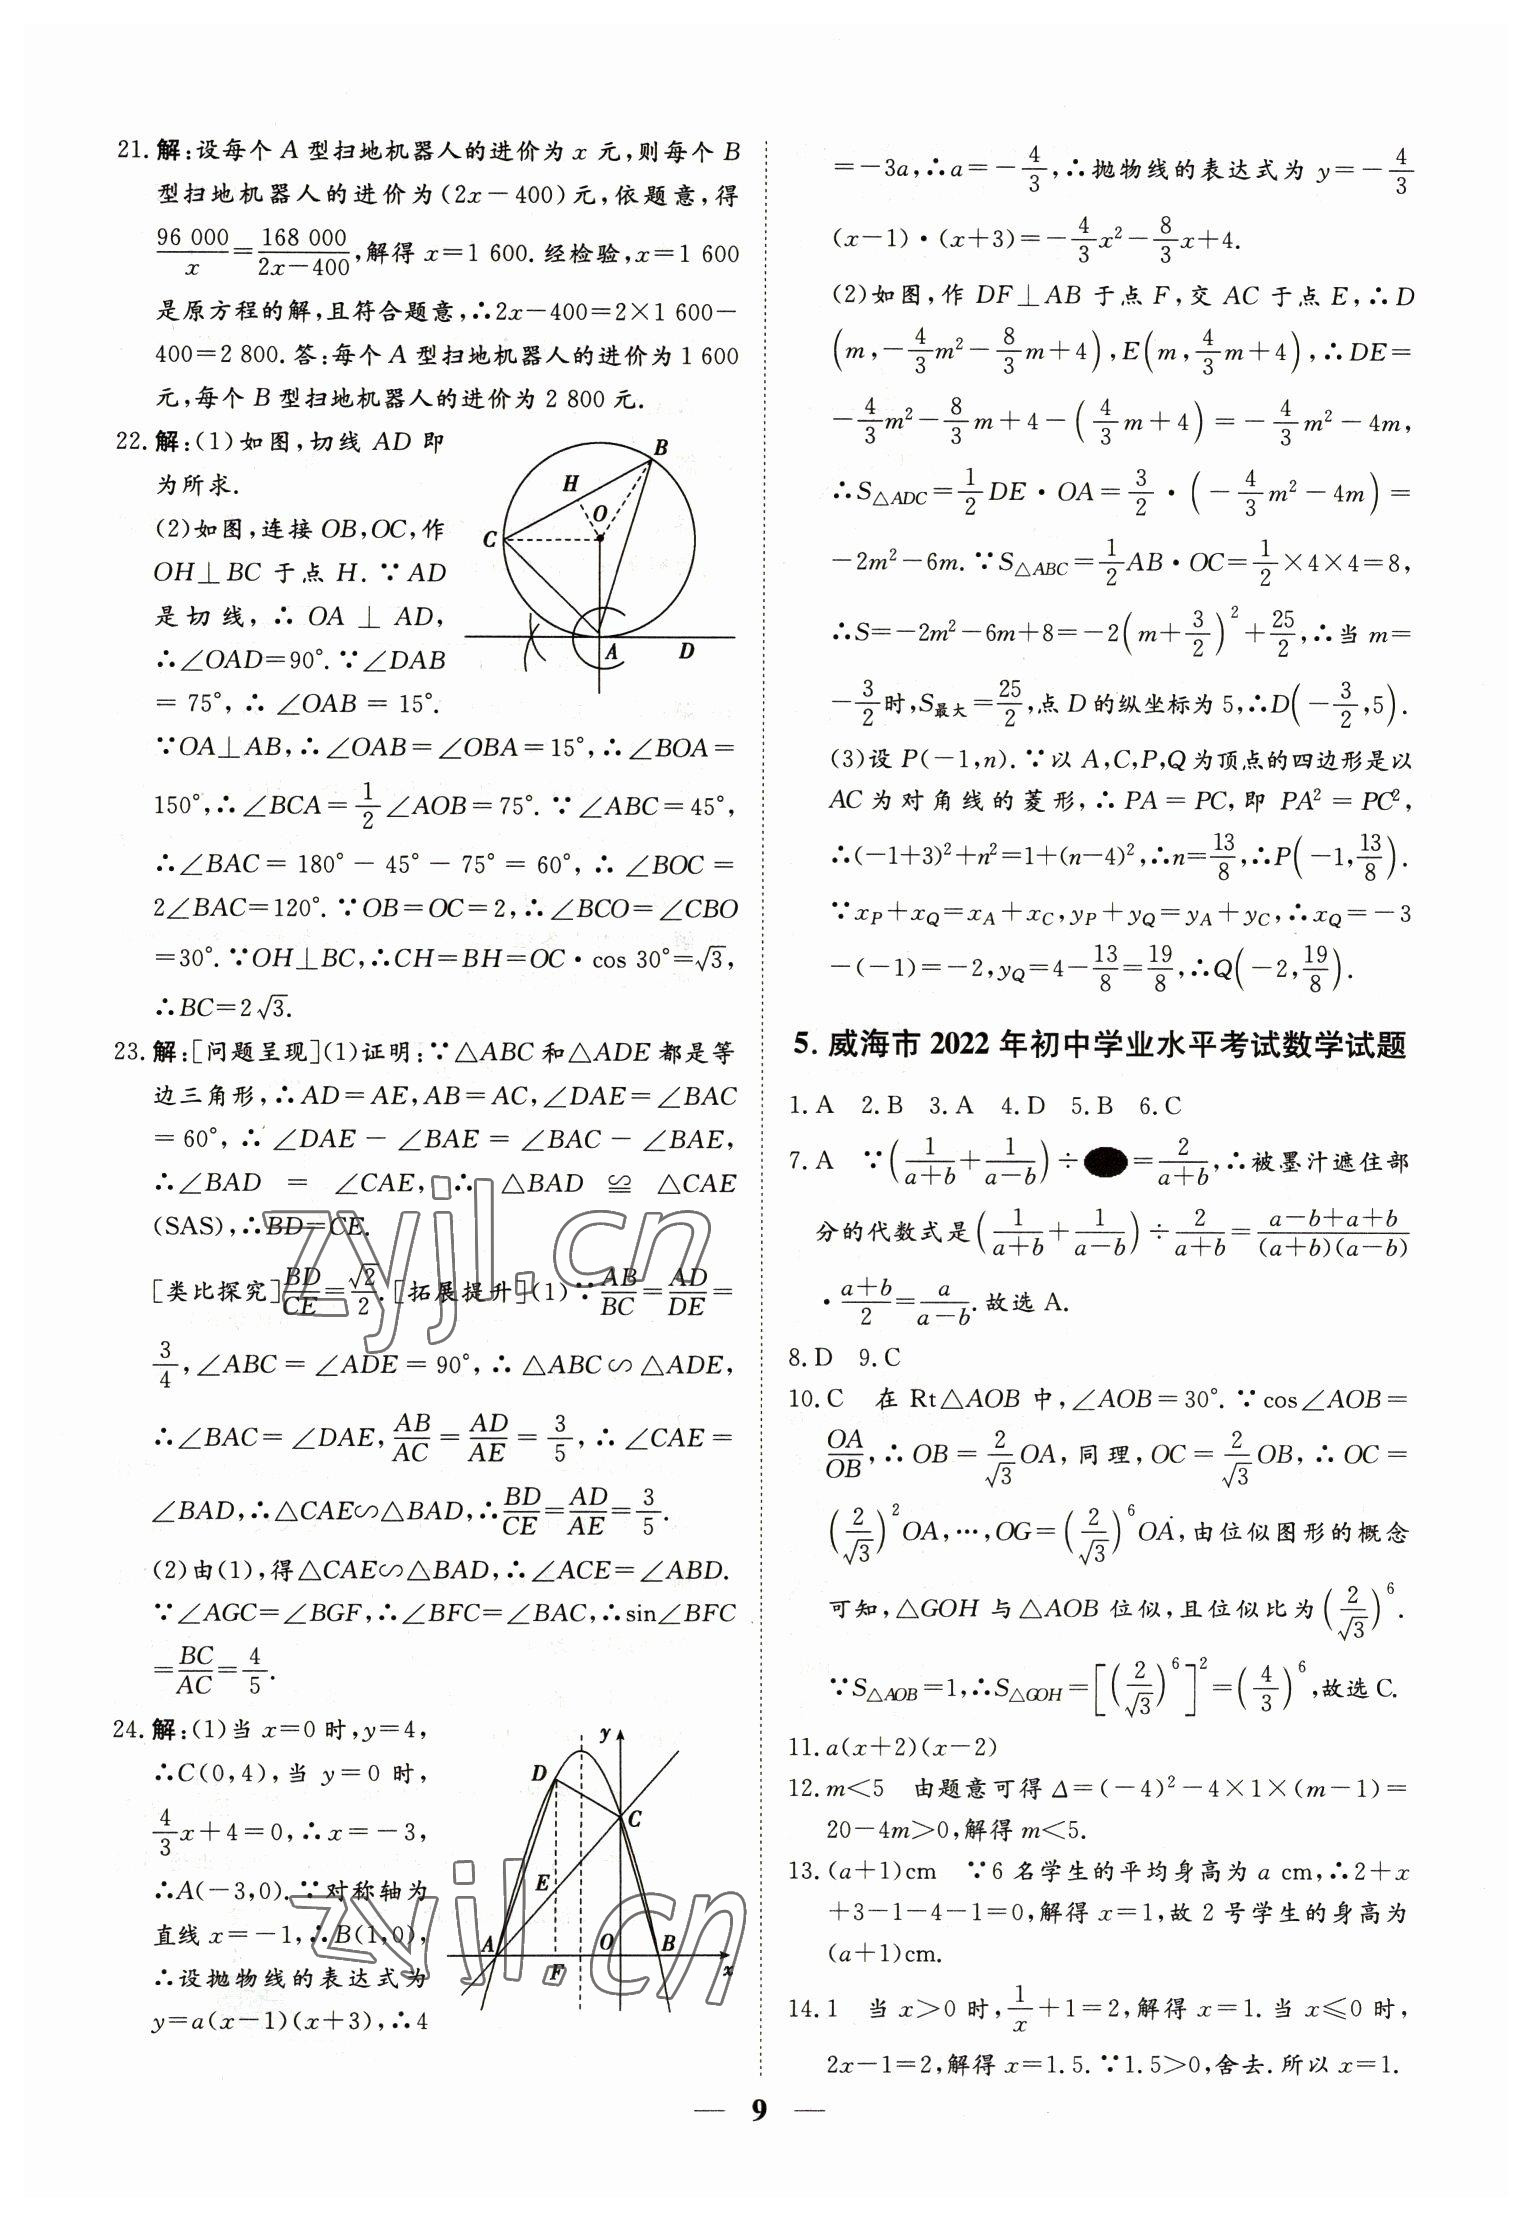 21. 解:设每个 A 型扫地机器人的进价为 x 元,则每个 B
型扫地机器人的进价为(2x-400)元,依题意,得
96 000/x=168 000/(2x-400),解得 x=1 600. 经检验,x=1 600
是原方程的解,且符合题意,∴2x-400=2×1 600-
400=2 800. 答:每个 A 型扫地机器人的进价为 1 600
元,每个 B 型扫地机器人的进价为 2 800 元.
22. 解:(1)如图,切线 AD 即
为所求.
(2)如图,连接 OB,OC,作
OH⊥BC 于点 H. ∵AD
是切线,∴OA⊥AD,
∴∠OAD=90°. ∵∠DAB
=75°,∴∠OAB=15°.
B
H
O
C
A
D
∵OA⊥AB,∴∠OAB=∠OBA=15°,∴∠BOA=
150°,∴∠BCA=1/2∠AOB=75°. ∵∠ABC=45°,
∴∠BAC=180°-45°-75°=60°,∴∠BOC=
2∠BAC=120°. ∵OB=OC=2,∴∠BCO=∠CBO
=30°. ∵OH⊥BC,∴CH=BH=OC·cos 30°=√3,
∴BC=2√3.
23. 解:[问题呈现](1)证明:∵△ABC和△ADE都是等
边三角形,∴AD=AE,AB=AC,∠DAE=∠BAC
=60°,∴∠DAE-∠BAE=∠BAC-∠BAE,
∴∠BAD=∠CAE,∴△BAD≌△CAE
(SAS),∴BD=CE.
[类比探究]BD/CE=√2/2. [拓展提升](1)∵AB/BC=AD/DE=
3/4,∠ABC=∠ADE=90°,∴△ABC∽△ADE,
∴∠BAC=∠DAE,AB/AC=AD/AE=3/5,∴∠CAE=
∠BAD,∴△CAE∽△BAD,∴BD/CE=AD/AE=3/5.
(2)由(1),得△CAE∽△BAD,∴∠ACE=∠ABD.
∵∠AGC=∠BGF,∴∠BFC=∠BAC,∴sin∠BFC
=BC/AC=4/5.
24. 解:(1)当 x=0 时,y=4,
∴C(0,4),当 y=0 时,
4/3x+4=0,∴x=-3,
∴A(-3,0). ∵对称轴为
直线 x=-1,∴B(1,0),
∴设抛物线的表达式为
y=a(x-1)(x+3),∴4
y
D
C
E
A
F
O
B
x
=-3a,∴a=-4/3,∴抛物线的表达式为 y=-4/3
(x-1)·(x+3)=-4/3x²-8/3x+4.
(2)如图,作 DF⊥AB 于点 F,交 AC 于点 E,∴D
(m,-4/3m²-8/3m+4),E(m,4/3m+4),∴DE=
-4/3m²-8/3m+4-(4/3m+4)=-4/3m²-4m,
∴S△ADC=1/2DE·OA=3/2·(-4/3m²-4m)=
-2m²-6m. ∵S△ABC=1/2AB·OC=1/2×4×4=8,
∴S=-2m²-6m+8=-2(m+3/2)²+25/2,∴当 m=
-3/2时,S最大=25/2,点 D 的纵坐标为 5,∴D(-3/2,5).
(3)设 P(-1,n). ∵以 A,C,P,Q 为顶点的四边形是以
AC 为对角线的菱形,∴PA=PC,即 PA²=PC²,
∴(-1+3)²+n²=1+(n-4)²,∴n=13/8,∴P(-1,13/8).
∵xP+xQ=xA+xC,yP+yQ=yA+yC,∴xQ=-3
-(-1)=-2,yQ=4-13/8=19/8,∴Q(-2,19/8).
5. 威海市 2022 年初中学业水平考试数学试题
1. A 2. B 3. A 4. D 5. B 6. C
7. A ∵(1/(a+b)+1/(a-b))÷●=2/(a+b),∴被墨汁遮住部
分的代数式是(1/(a+b)+1/(a-b))÷2/(a+b)=(a-b+a+b)/((a+b)(a-b))
·(a+b)/2=a/(a-b). 故选 A.
8. D 9. C
10. C 在 Rt△AOB 中,∠AOB=30°. ∵cos∠AOB=
OA/OB,∴OB=2/√3OA,同理,OC=2/√3OB,∴OC=
(2/√3)²OA,…,OG=(2/√3)⁶OA,由位似图形的概念
可知,△GOH 与△AOB 位似,且位似比为(2/√3)⁶.
∵S△AOB=1,∴S△GOH=[(2/√3)⁶]²=(4/3)⁶,故选 C.
11. a(x+2)(x-2)
12. m<5 由题意可得 Δ=(-4)²-4×1×(m-1)=
20-4m>0,解得 m<5.
13. (a+1)cm ∵6 名学生的平均身高为 a cm,∴2+x
+3-1-4-1=0,解得 x=1,故 2 号学生的身高为
(a+1)cm.
14. 1 当 x>0 时,1/x+1=2,解得 x=1. 当 x≤0 时,
2x-1=2,解得 x=1.5. ∵1.5>0,舍去. 所以 x=1.
— 9 —
zyjl.cn
zyjl.cn